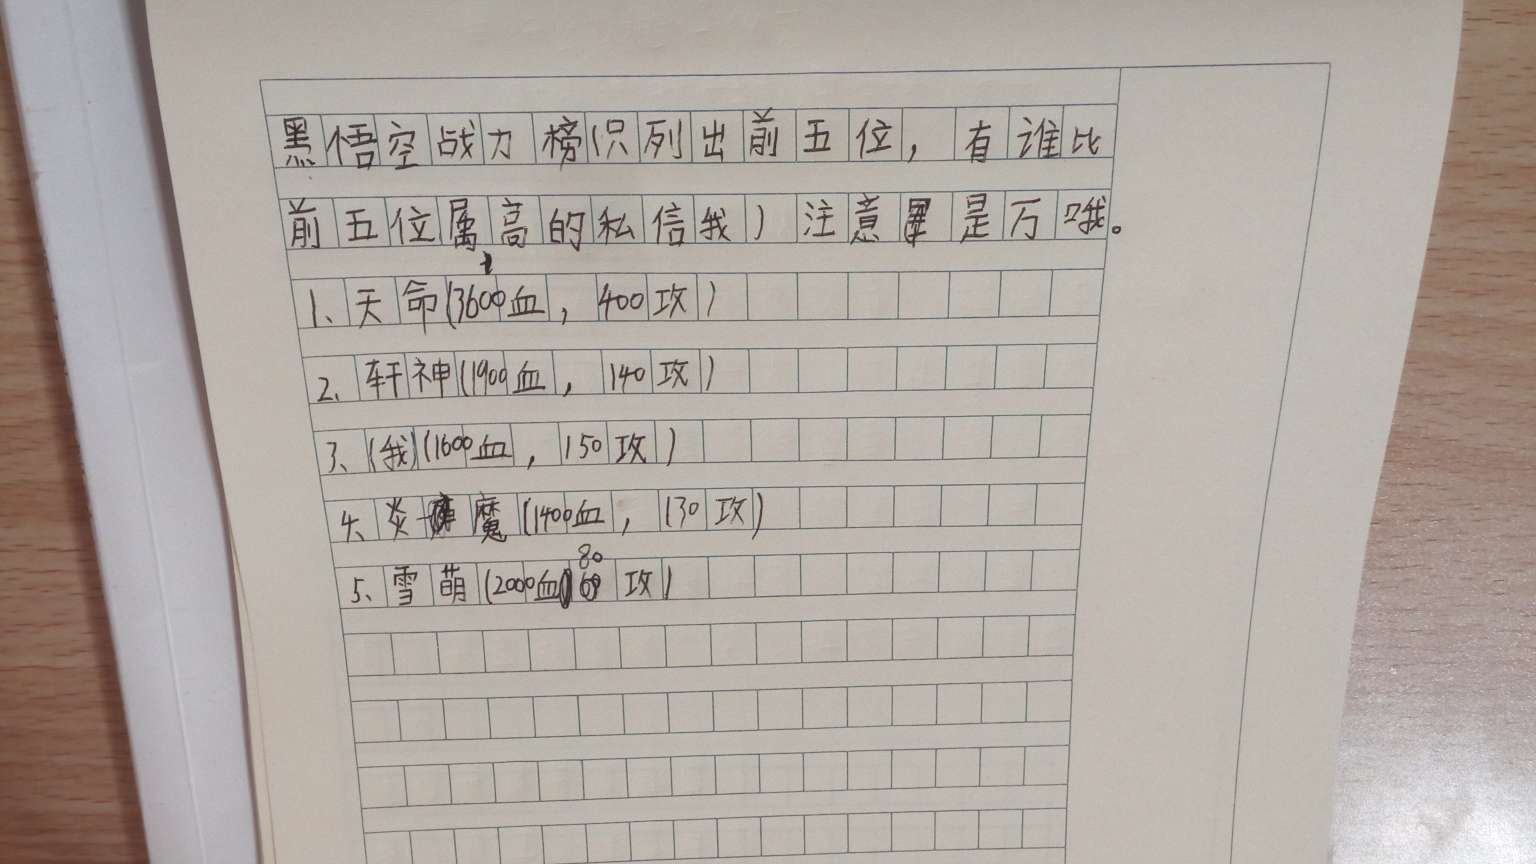 黑悟空战力榜(只列出前五位，有谁比
前五位属高的私信我）注意單是万哦。
1、天命(3600血，400攻)
2、轩神(1900血，140攻)
3、(我)(1600血，150攻)
4、炎魔(1400血，130攻)
5、雪萌(2000血 80攻)